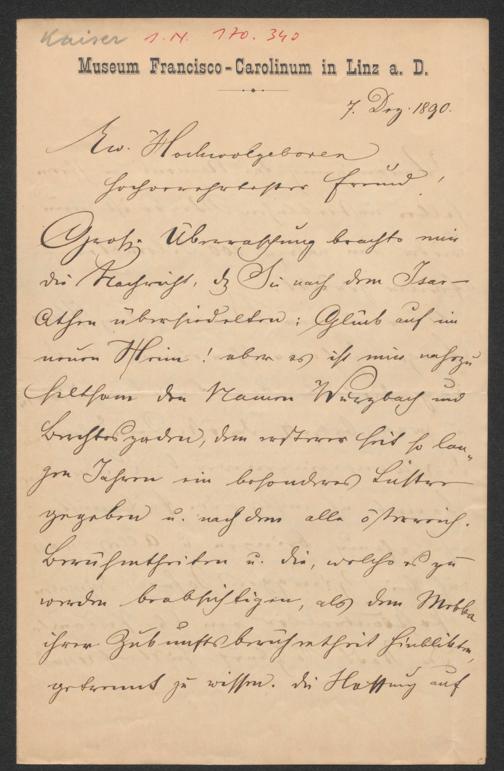 Kaiser I.N. 170.340
Museum Francisco-Carolinum in Linz a. D.
7. Dez. 1890.
Ew. Hochwolgeboren
hochverehrtester Freund!
Große Überraschung brachte mir
die Nachricht, dß Sie nach dem Isar-
Athen übersiedelten: Glück auf im
neuen Heim! aber es ist mir nahezu
seltsam den Namen Wurzbach und
Berchtesgaden, dem ersterer seit so lan-
gen Jahren ein besonderes Lüstre
gegeben u. nach dem alle österreich.
Berühmtheiten u. die, welche es zu
werden beabsichtigen, als dem Mekka
ihrer Zukunftsberühmtheit hinblickten,
getrennt zu wissen. Die Hoffnung auf